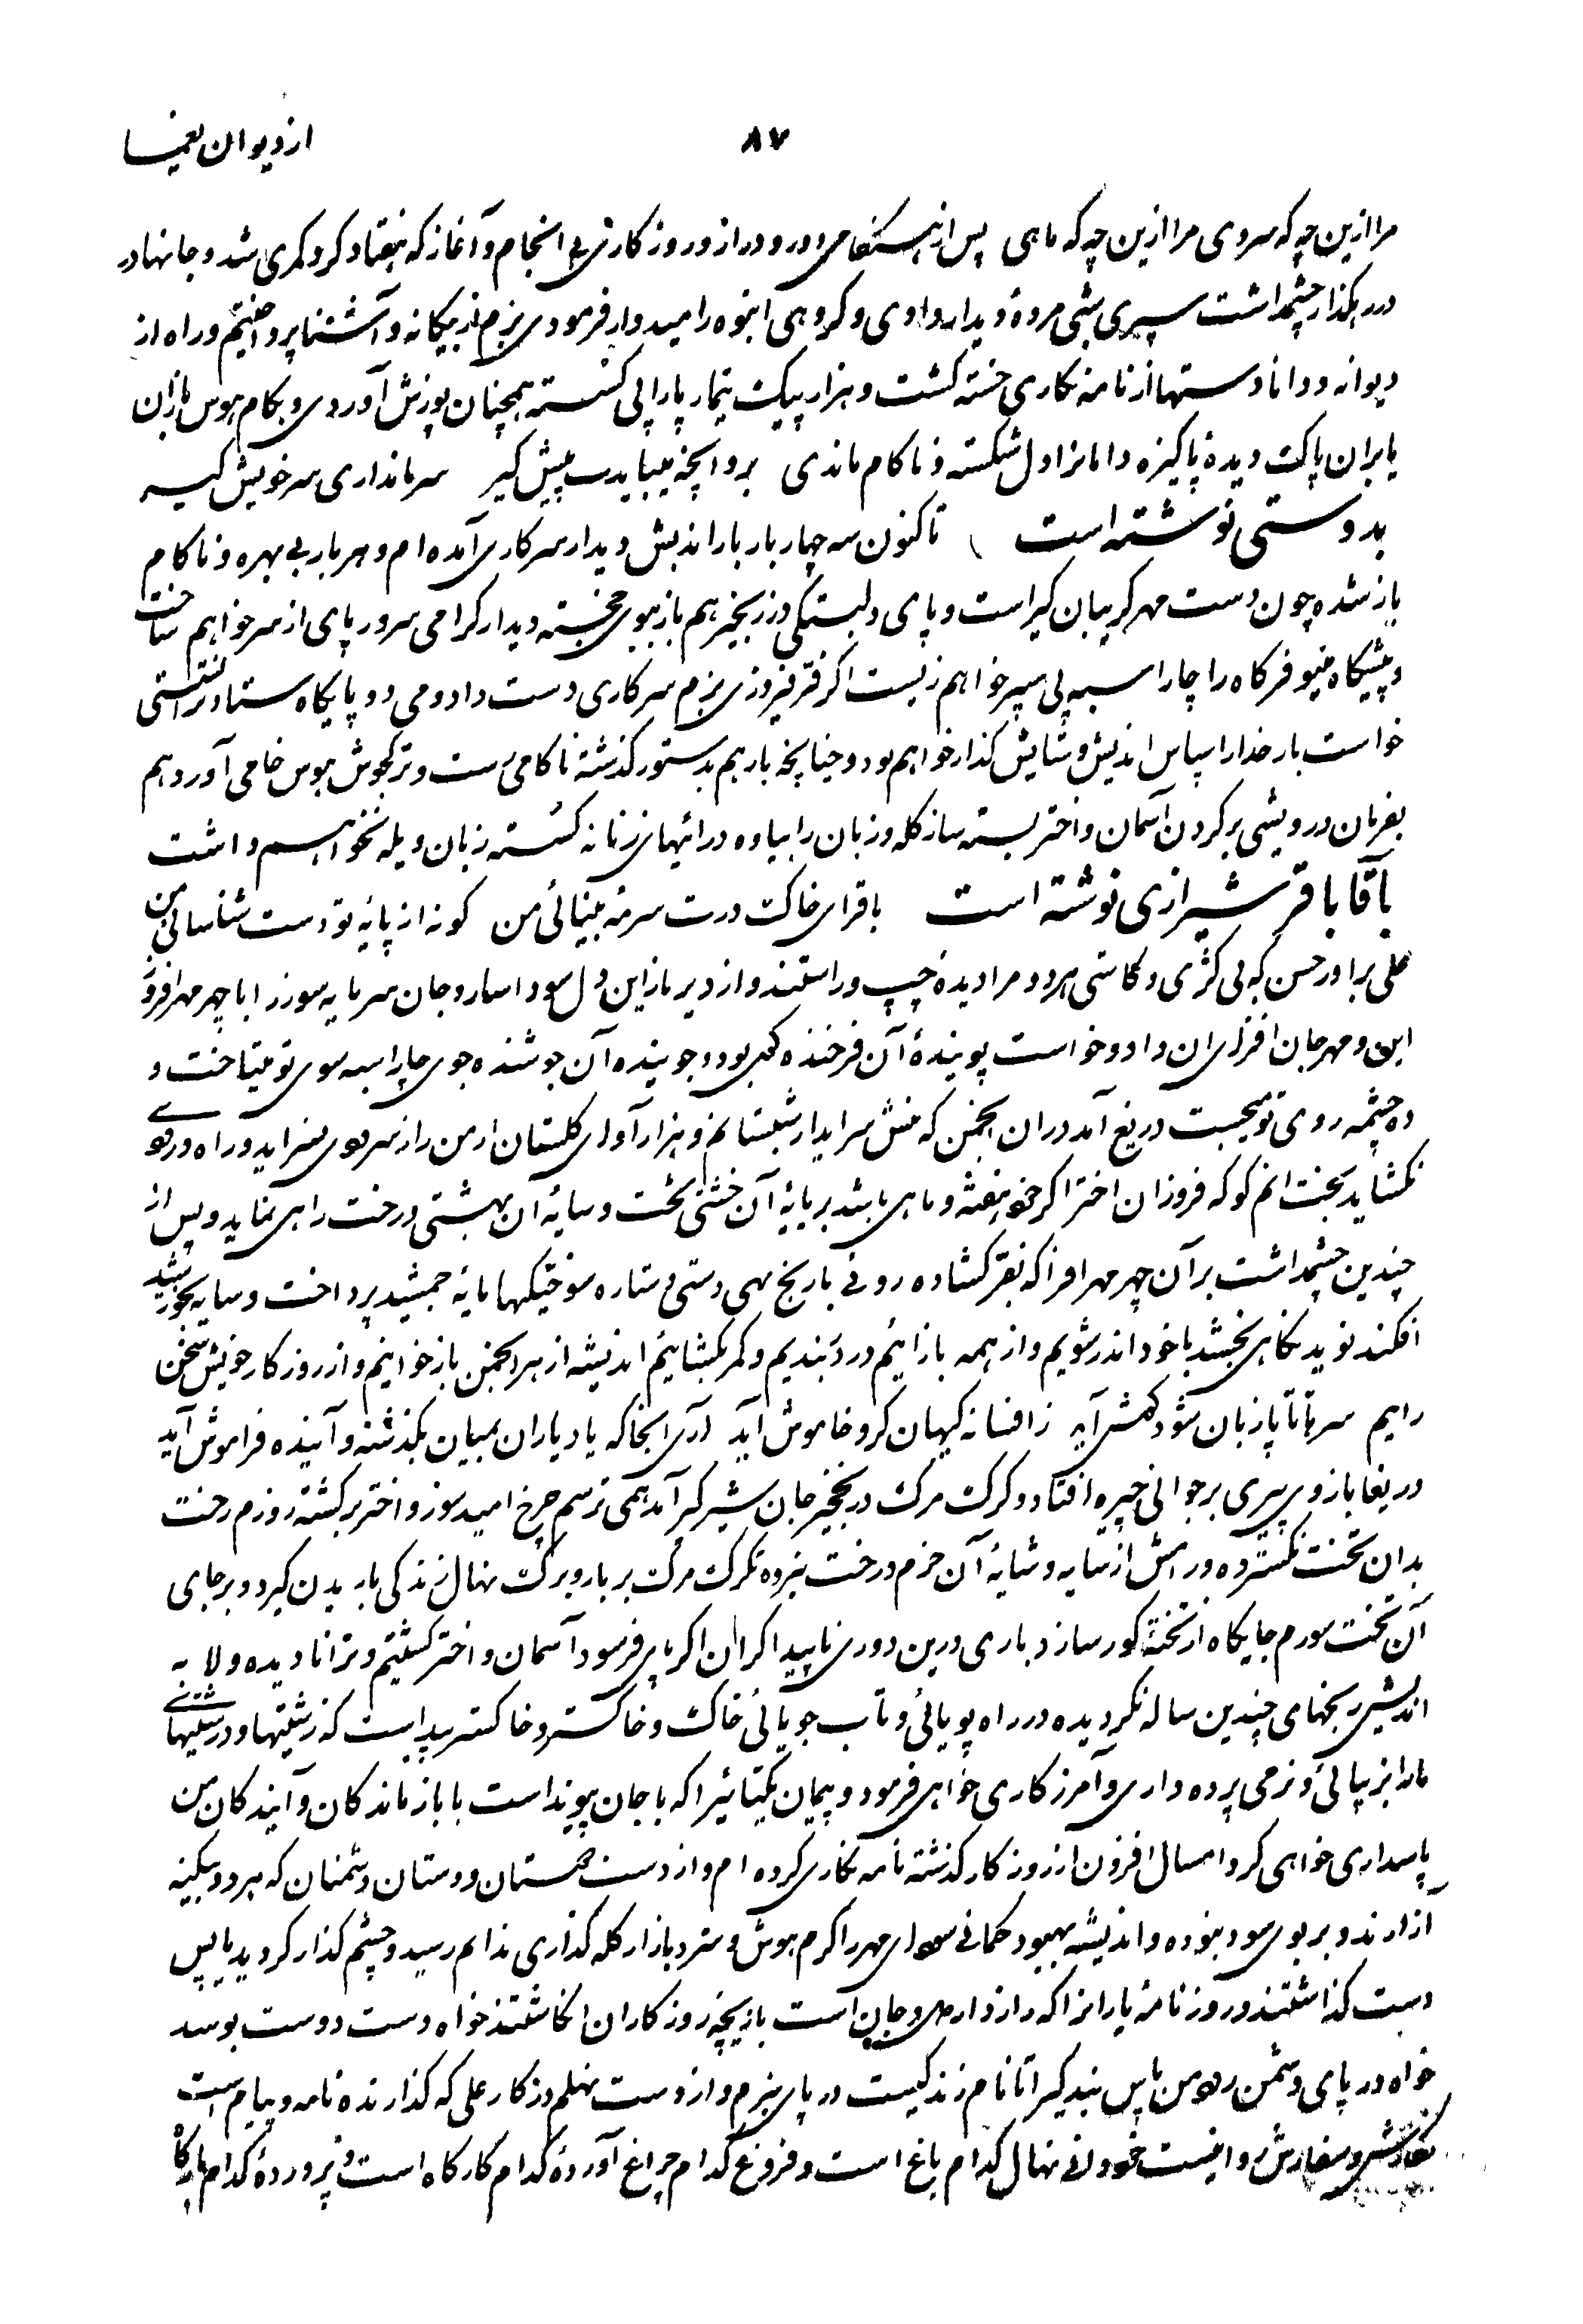 از دیوان یغما
۸۷
مرا ازین چه که سروی مرا ازین چه که ماهی پس از هنگامی دور و دراز و روزگاری بی انجام و آغاز که هفتاد کرو کمری شد و جانها در
در رهگذار چشمداشت سپری بشی مژدهٔ دیدار دادی و گروهی انبوه را امیدوار فرمودی بزم از بیگانه و آشنا پرداختیم و راه از
دیوانه و دانا دستها از نامه نگاری خسته گشت و هزار پیک تیمار پا را پی گسسته همچنان پوزش آوردی و بکام هوس بازان
یا بران پاک دیده پاکیزه دامانرا دل شکسته و ناکام ماندی برو آنچه میبایدت پیش گیر سر مانداری سر خویش گیر
بدوستی نوشته است تاکنون سه چهار بار بار اندیش دیدار سرکاری آمده ام و هر بار بی بهره و ناکام
باز شده چون دست مهر گریبان گیر است و پای دلبستگی در زنجیر هم باز ببوی خجسته دیدار گرامی سرور پای از سر خواهم ساخت
و پیشگاه مینو فرگاه را چار اسبه پی سپر خواهم زیست اگر فر فیروزی بزم سرکاری دست داد و می دو پایگاه ستاد و نشستی
خواست بار خدا را سپاس اندیش و ستایش گذار خواهم بود و چنانچه بار هم بدستور گذشته ناکامی رست و ترکجوش هوس خامی آورد هم
بفرمان درویشی بر گردن آسمان و اختر بسته ساز گله و زبان را بیاوه درائیهای زنانه گسسته زبان ویله نخواهم داشت
بآقا باقر شیرازی نوشته است باقرا ی خاک درت سرمه بینائی من کونه از پایه تو دست شناسائی من
علی برادر حسن که بی کژی و کاستی هر دو مرا دیده چپ و راستند و از دیر باز این دل سودا سار و جان سرمایه سوز را با چهر مهر افروز
این و مهر جان افزای ان داد و خواست پوینده آن فرخنده کهی بود و جوینده آن جوشنده جوی چار اسبه سوی تو میتاخت و
ده چشمه روی تو میجست دریغ آمد در ان انجمن که منش سرایدار شبستانم و هزار آوای گلستان از من راز سر موی نسراید و راه در توی
نگشاید بخت انم کو که فروزان اختر اگر خود هفته و ماهی باشد بر پایهٔ آن خشتی تخت و سایهٔ آن بهشتی درخت راهی نماید و پس از
چندین چشمداشت بر آن چهر مهر افزا که بفر گشاده روئی با رنج تهی دستی و ستاره سوختگیها مایه جمشید پرداخت و سایه بخورشید
افکند نوید نگاهی بخشد با خود اندر شویم و از همه باز ائیم در دَبندیم و کمر بگشائیم اندیشه از هر انجمن باز خوانیم و از روزگار خویش سخن
رانیم سر تا پا زبان شود گمش آید ز افسانه کیهان کر و خاموش آید آری آنجا که یاد یاران بمیان بگذشته و آینده فراموش آید
دریغا بازوی پیری بر جوانی چیره افتاد و گرگ مرگ در نخجیر جان شیر گیر آمد همی ترسم چرخ امید سوز و اختر برگشته روزم رخت
بدان تخت نگسترده و رامش از سایه و شایهٔ آن خرم درخت نبرده تگرگ مرگ بر بار و برگ نهال زندگی باریدن گیرد و بر جای
آن تخت سورم جایگاه از تختهٔ گور سازد باری درین دوری ناپیدا کران اگر پای فرسود آسمان و اختر گشتیم و ترا نادیده ولا به
اندیش رنجهای چندین ساله نگردیده در راه پویائی و تاب جویائی خاک و خاکستر و خاکستر پیداست که زشتیها و درشتیهای
ما را بزیبائی و نرمی پرده داری و آمرزگاری خواهی فرمود و پیمان یکتائیرا که با جان پیونداست با بازماندگان و آیندگان من
پاسداری خواهی کرد امسال افزون از روزگار گذشته نامه نگاری کرده ام و از دست دوستان دشمنان که هر دو بکینه
آزارند و بر بوی سود بنوده و اندیشه بهبود گمانی سودای مهر را گرم بهوش و سرد بازار گله گذاری ندانم رسید و چشم گذار گردید یا پس
دست گذاشتند و روز نامهٔ یارانرا که راز دار دل و جان است بازیچه روزگاران انگاشتند خواه دست دوست بوسد
خواه در پای دشمن روه من پاس بندگیرا تا نام زندگیست در پای نبرم و از دست نهلم در کار علی که گذارنده نامه و پیام است
سفارش روا نیست خود دانی نهال کدام باغ است و فروغ کدام چراغ آوردهٔ کدام کارگاه است و پروردهٔ کدام بارگاه